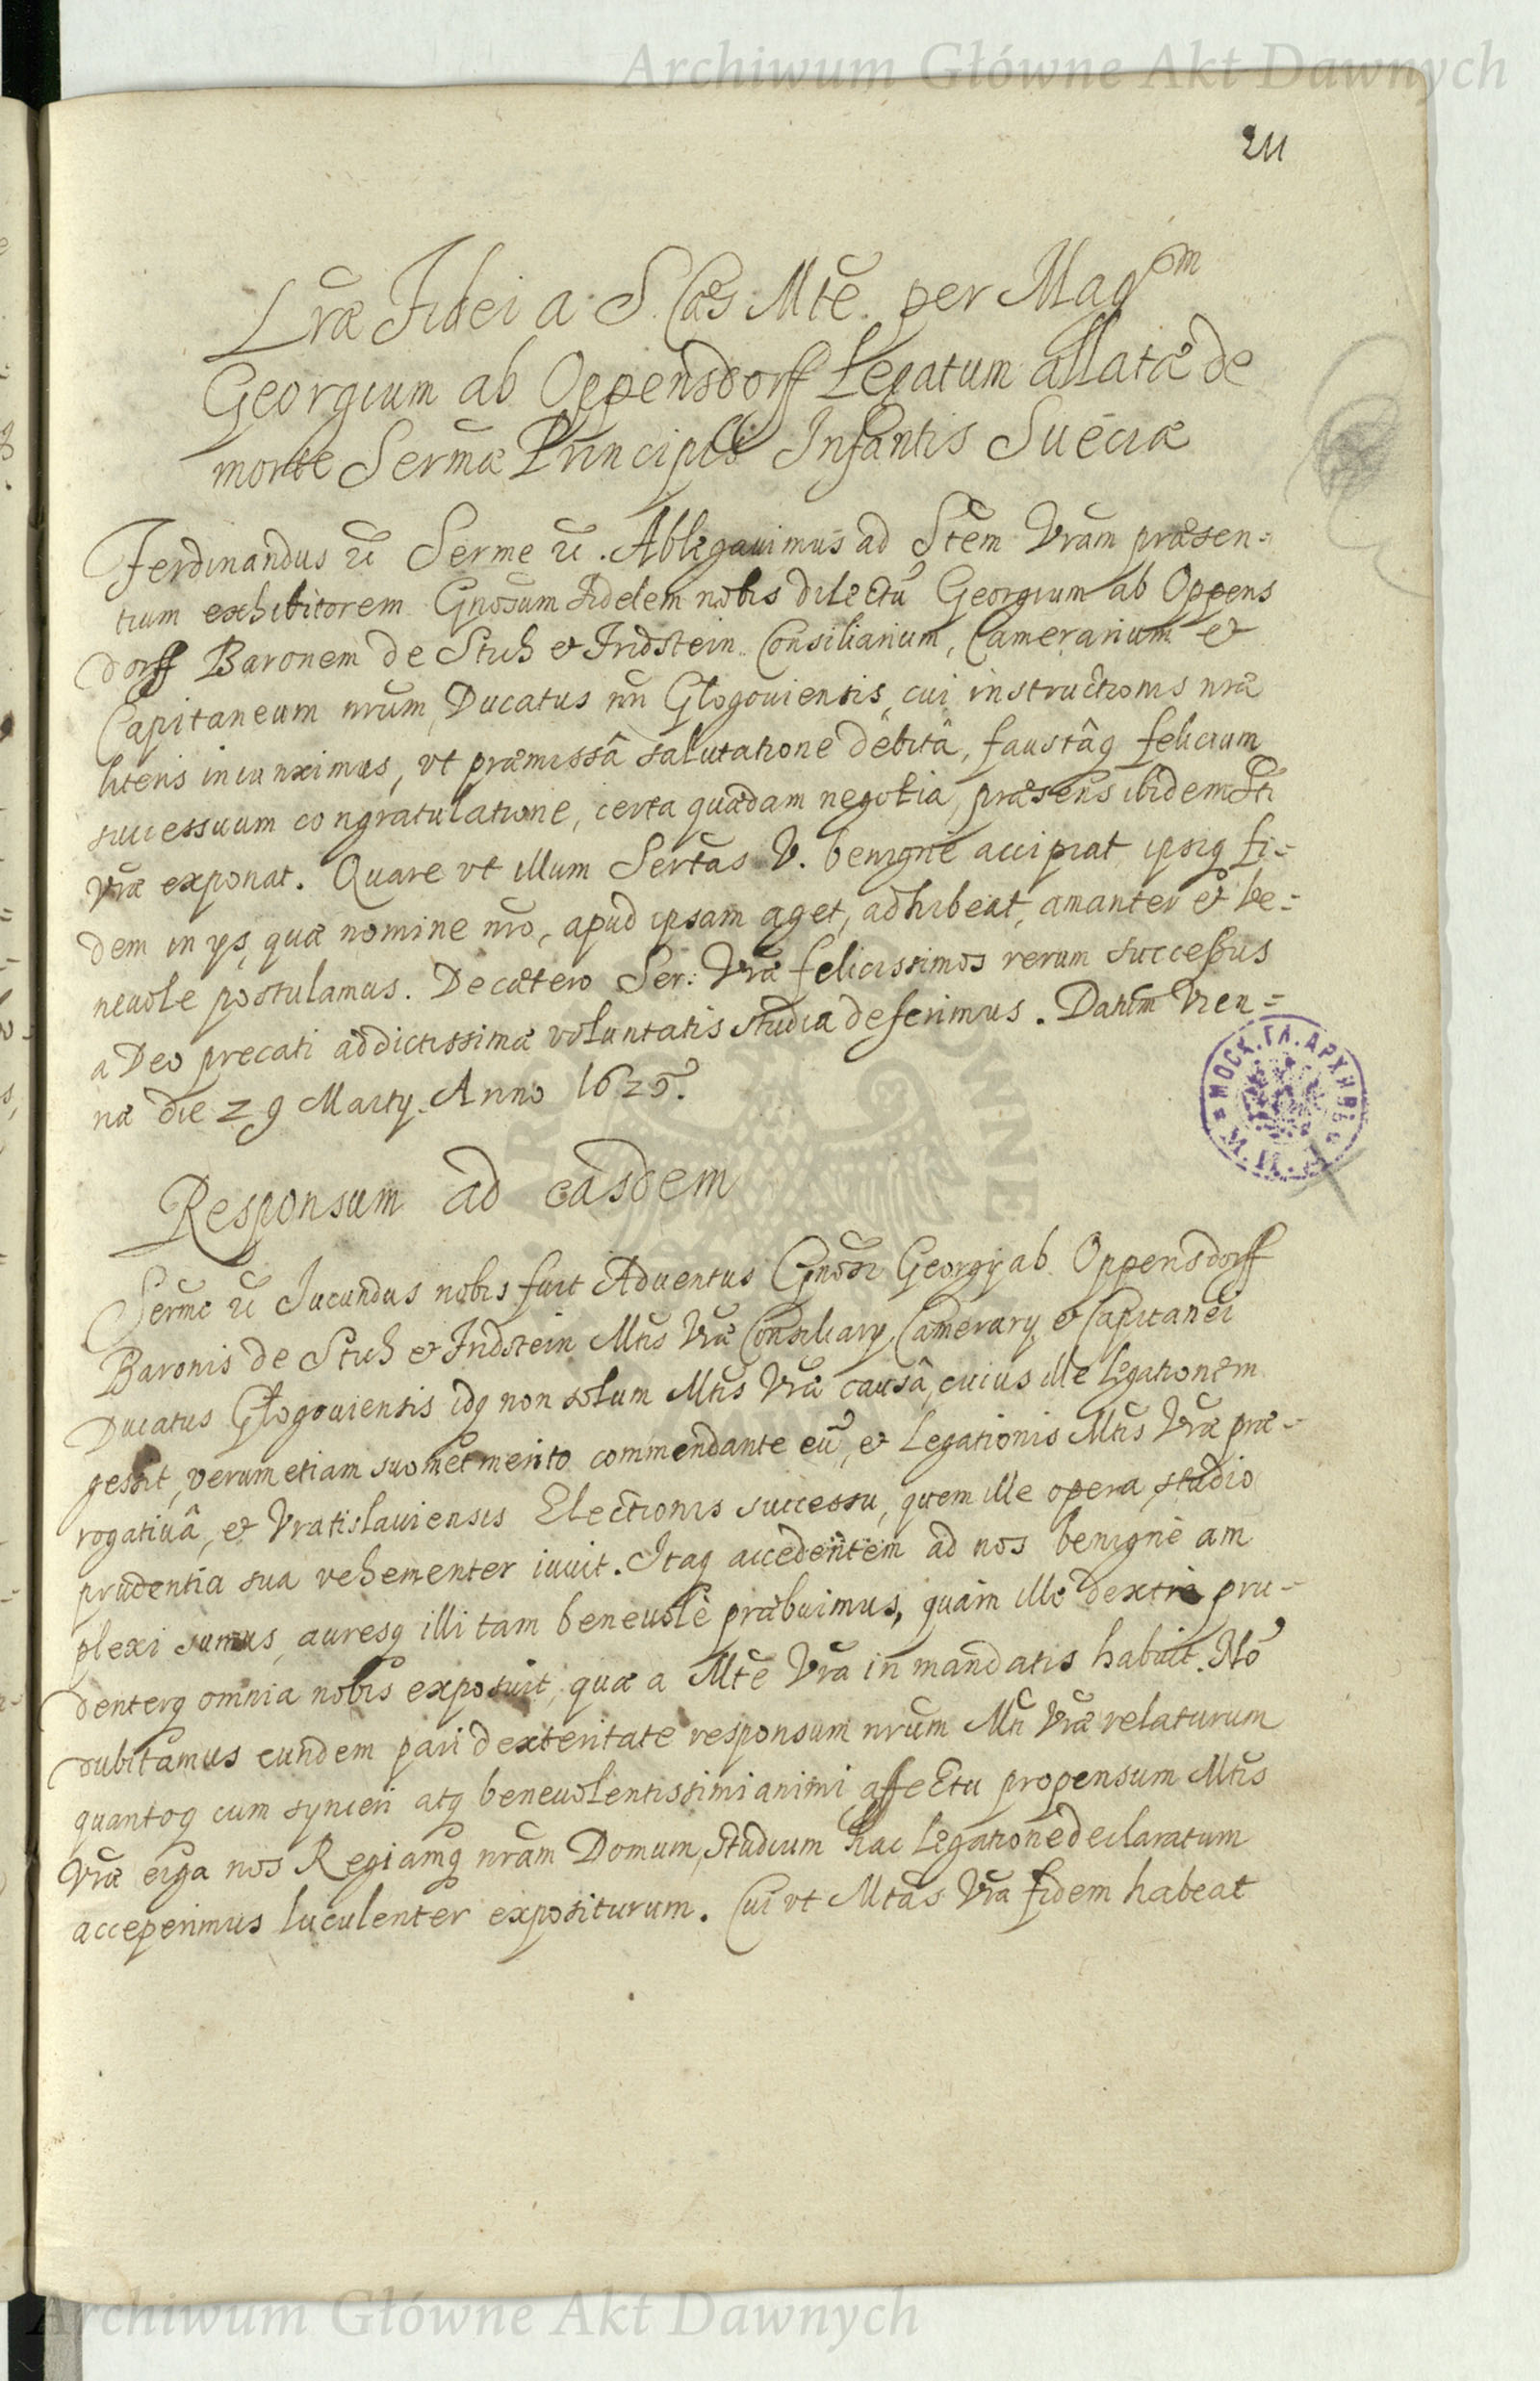 Archiwum Główne Akt Dawnych
211
Lræ Fidei a S. Cæs Mte. per Magcm
Georgium ab Oppensdorff Legatum allatæ de
morte Sermæ Principis Infantis Sueciæ
Ferdinandus etc Serme etc. Ablegauimus ad Stem Vram præsen=
tium exhibitorem Gnosum fidelem nobis dilectũ Georgium ab Oppens
dorff Baronem de Stich et Fridstein Consiliarium, Camerarium et
Capitaneum nrum, Ducatus nri Glogouiensis, cui instructionis nræ
literis iniunximus, vt præmissâ salutatione debitâ, faustâq felicium
successuum congratulatione, certa quædam negotia, præsens ibidem Sti
Vræ exponat. Quare vt illum Sertas V. benigne accipiat, ipsiq fi=
dem in ys, quæ nomine nro, apud ipsam aget, adhibeat, amanter et be=
neuole postulamus. De cætero Ser: Vræ felicissimos rerum successus
a Deo precati addictissimæ voluntatis studia deferimus. Datum Vien=
næ die 29 Marty. Anno 1625.
Responsum ad easdem
Serme etc Iucundus nobis fuit Aduentus Gnosi Georgy ab Oppensdorff
Baronis de Stich et Fridstein Mtis Vræ Consiliary, Camerary et Capitanei
Ducatus Glogouiensis idq non solum Mtis Vræ causâ, cuius ille legationem
gessit, verum etiam suomet merito commendante eũ, et Legationis Mtis Vræ præ=
rogatiuâ, et Vratislauiensis Electionis successu, quem ille opera, studio
prudentia sua vehementer iuuit. Itaq accedentem ad nos benignè am
plexi sumus, auresq illi tam beneuolè præbuimus, quàm ille dextrè pru=
denterq omnia nobis exposuit, quæ a Mte Vra in mandatis habuit. Nõ
dubitamus eundem pari dexteritate responsum nrum Mti Vræ relaturum
quantoq cum synceri atq beneuolentissimi animi affectu propensum Mtis
Vræ erga nos Regiamq nram Domum, studium hac Legatione declaratum
acceperimus luculenter expositurum. Cui vt Mtas Vra fidem habeat
МОСК. ГЛ. АРХИВЪ
Archiwum Główne Akt Dawnych